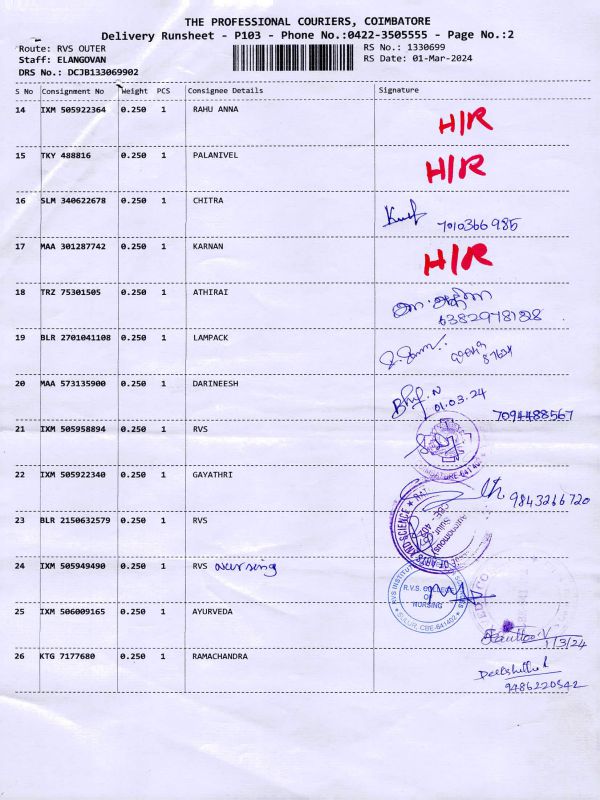 THE PROFESSIONAL COURIERS, COIMBATORE
Delivery Runsheet - P103 - Phone No.:0422-3505555 - Page No.:2
Route: RVS OUTER RS No.: 1330699
Staff: ELANGOVAN RS Date: 01-Mar-2024
DRS No.: DCJB133069902
S No Consignment No Weight PCS Consignee Details Signature
14 IXM 505922364 0.250 1 RAHU ANNA H/R
15 TKY 488816 0.250 1 PALANIVEL H/R
16 SLM 340622678 0.250 1 CHITRA 7010366985
17 MAA 301287742 0.250 1 KARNAN H/R
18 TRZ 75301505 0.250 1 ATHIRAI
19 BLR 2701041108 0.250 1 LAMPACK
20 MAA 573135900 0.250 1 DARINEESH 01.03.24 7094488567
21 IXM 505958894 0.250 1 RVS
22 IXM 505922340 0.250 1 GAYATHRI 9843266720
23 BLR 2150632579 0.250 1 RVS
24 IXM 505949490 0.250 1 RVS nursing
R.V.S. COLLEGE
OF
NURSING
SULUR, CBE-641402
25 IXM 506009165 0.250 1 AYURVEDA
26 KTG 7177680 0.250 1 RAMACHANDRA
9486220542